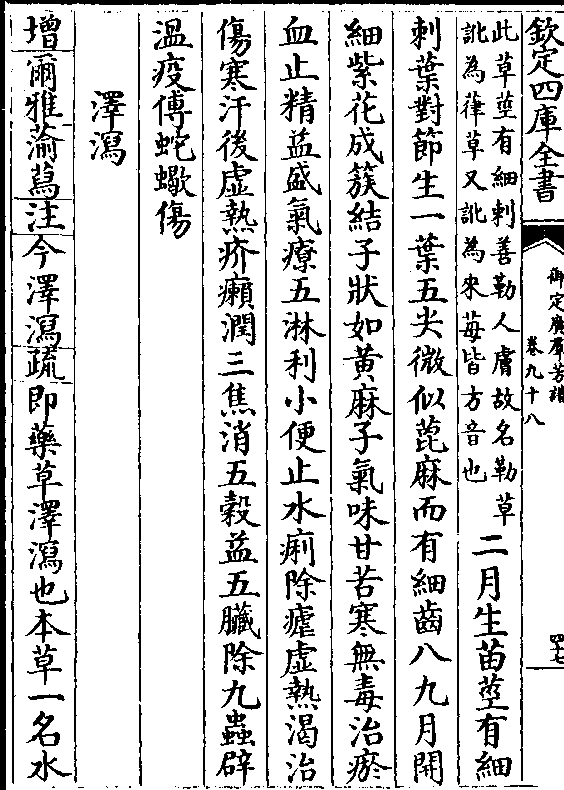 欽定四庫全書
御定廣羣芳譜
卷九十八
四十七
此草莖有細刺善勒人膚故名勒草
訛為葎草又訛為來莓皆方音也
二月生苗莖有細
刺葉對節生一葉五尖微似蓖麻而有細齒八九月開
細紫花成簇結子狀如黃麻子氣味甘苦寒無毒治瘀
血止精益盛氣療五淋利小便止水痢除瘧虛熱渴治
傷寒汗後虛熱疥癩潤三焦消五榖益五臟除九蟲辟
溫疫傅蛇蠍傷
澤瀉
增爾雅蕍蕮注今澤瀉疏即藥草澤瀉也本草一名水